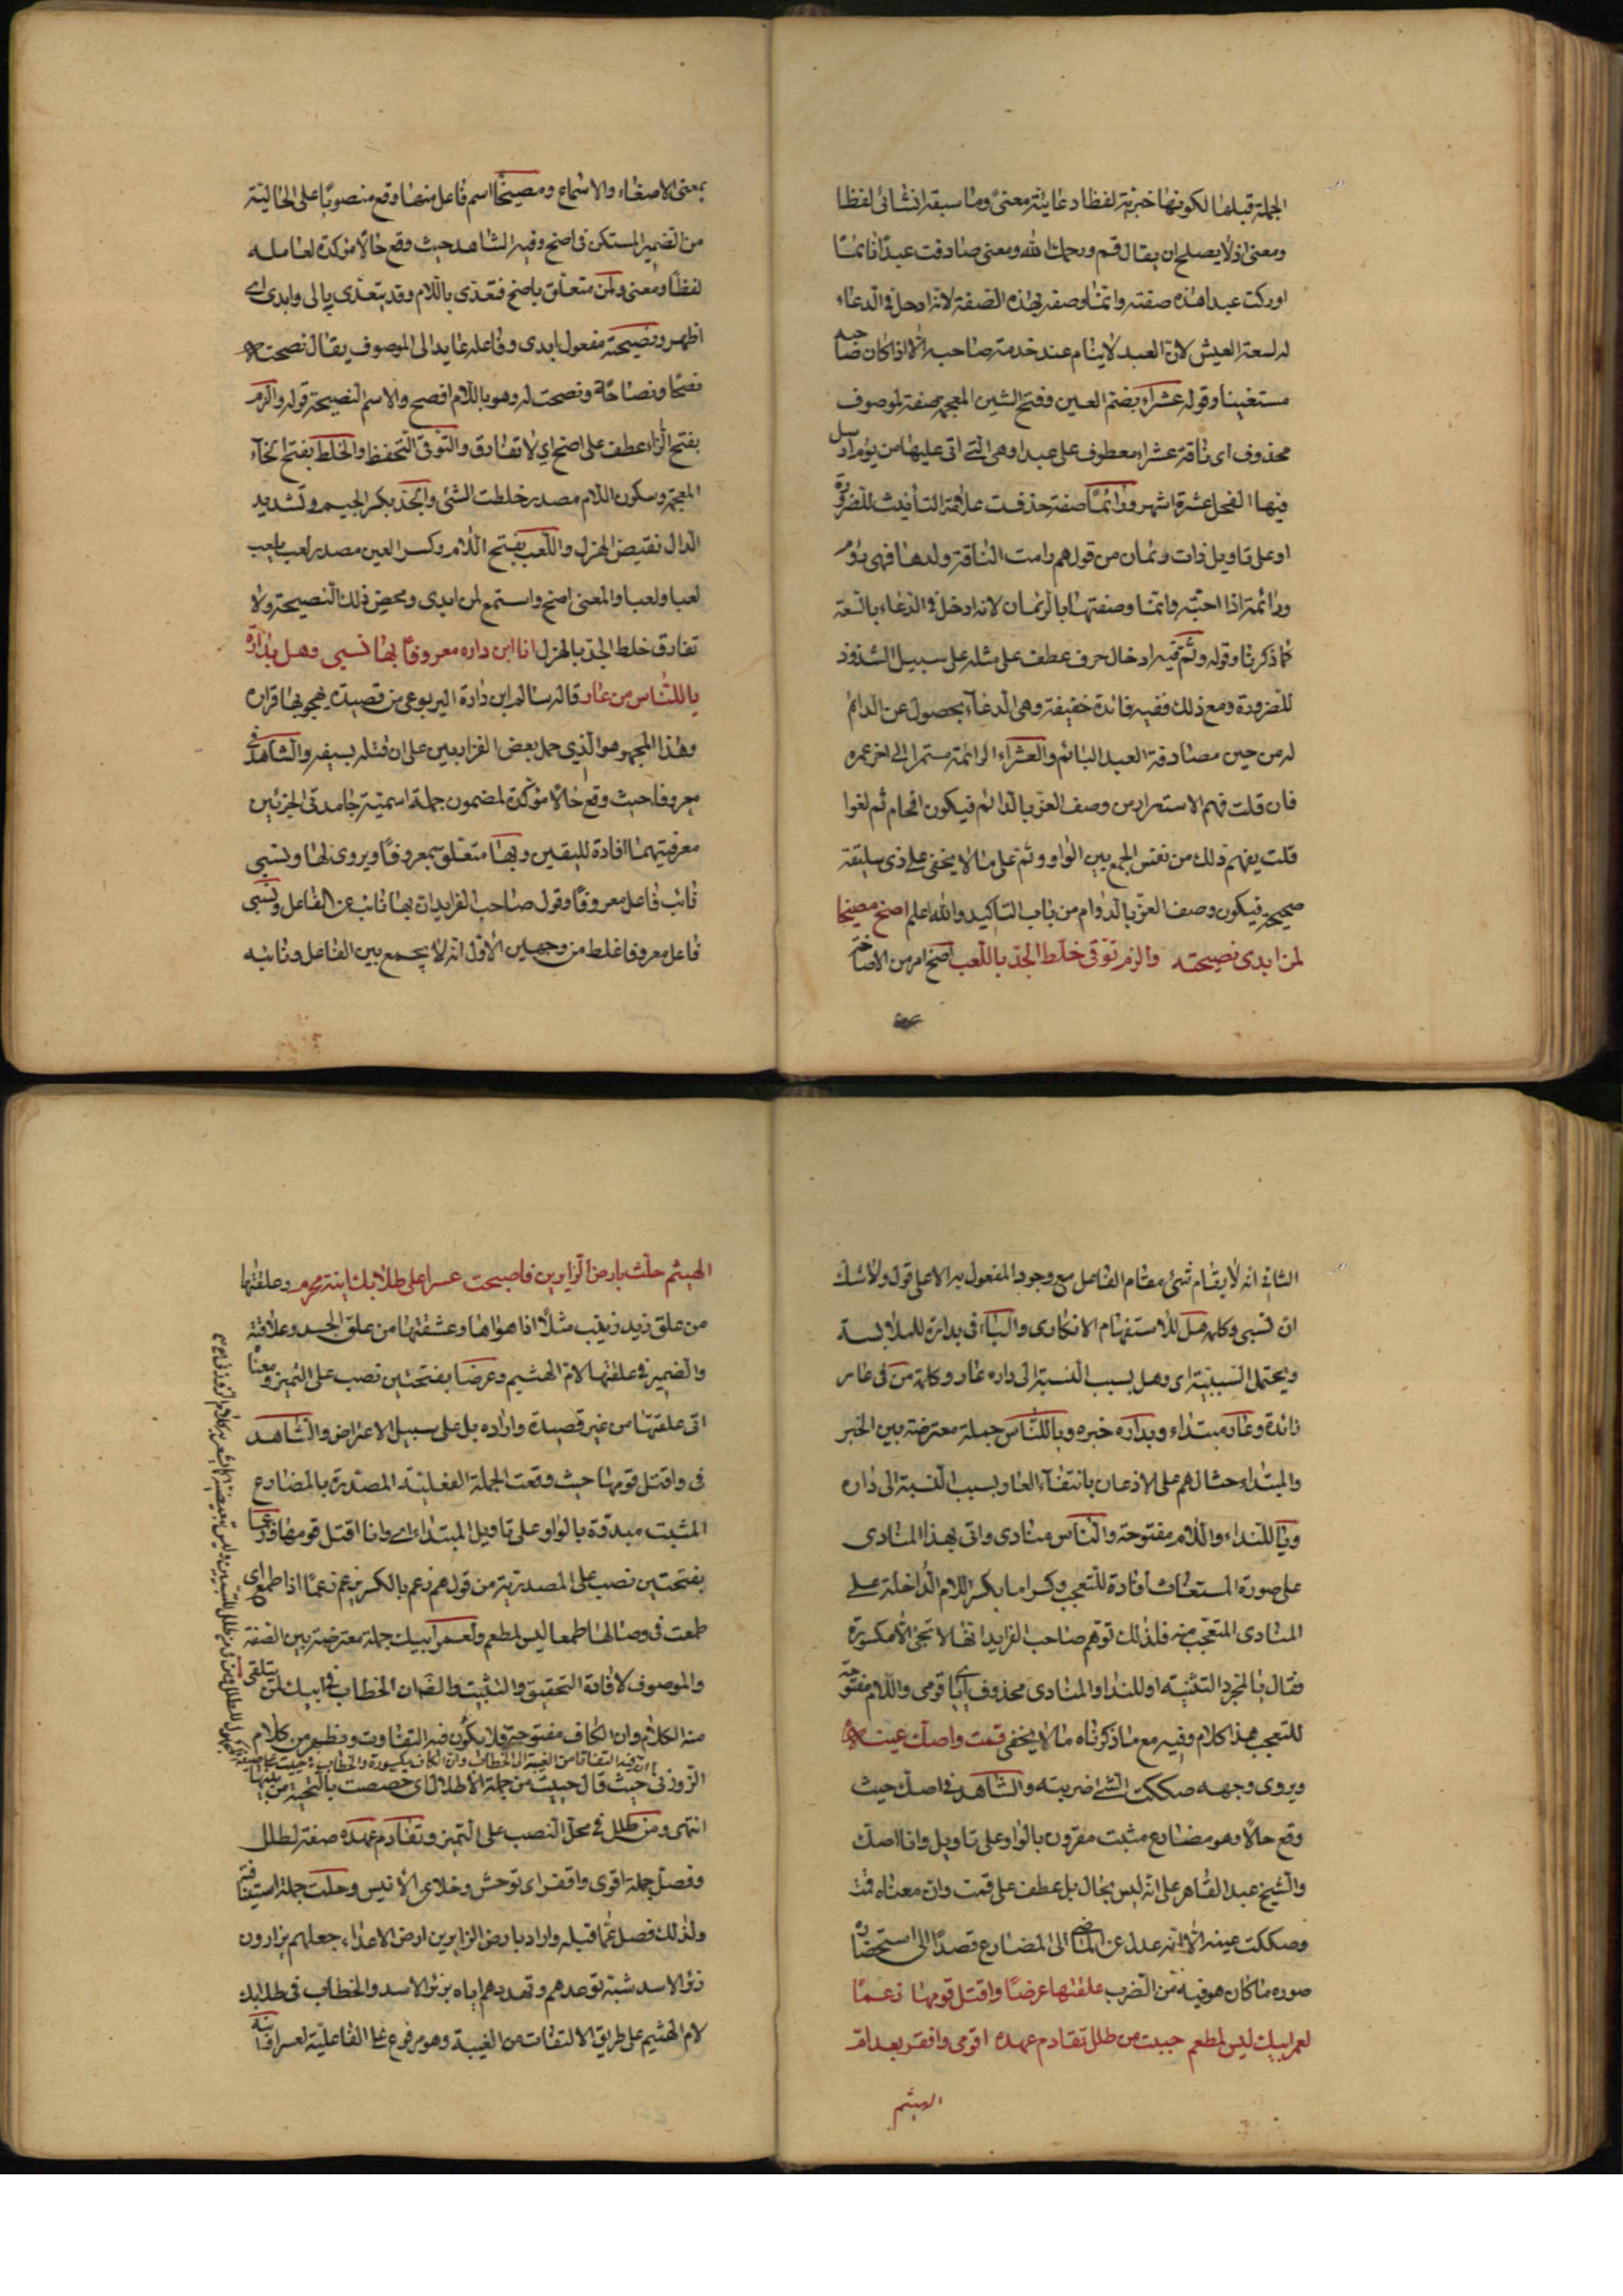 الجملة قبلها لكونها خبرية لفظا دعائية معنى وما سبقه انشائى لفظا
ومعنى اذ لا يصلح ان يقال قم ورحمك الله ومعنى صادفت عبدا نائما
ادركت عبدا هذه صفته وانما وصفه بهذه الصفة لانه ادخل فى الدعاء
له لسعة العيش لان العبد لا ينام عند خدمة صاحبه الا اذا كان صاحبه
مستغنيا وقوله عشراء بضم العين وفتح الشين المعجمة صفة لموصوف
محذوف اى ناقة عشراء معطوف على عبدا وهى التى اتى عليها من يوم ارسل
فيها الفحل عشرة اشهر ورائما صفة حذفت علامة التأنيث للضرورة
او على تاويل ذات ورئمان من قولهم رامت الناقة ولدها فهى رؤم
ورائمة اذا احبته وانما وصفتها بالرئمان لانه ادخل فى الدعاء بالسعة
كما ذكرنا وقوله وثم فيه ادخال حرف عطف على مثله على سبيل الشذوذ
للضرورة ومع ذلك ففيه فائدة خفيفة وهى الدعاء بحصول عن الدائم
له من حين مصادفة العبد النائم والعشراء الرائمة مستمرا الى اخر عمره
فان قلت فهم الاستمرار من وصف العز بالدائم فيكون اقحام ثم لغوا
قلت يفهم ذلك من نفس الجمع بين الواو وثم على ما لا يخفى على ذى سليقة
صحيحة فيكون وصف العز بالدوام من باب التاكيد والله اعلم اصخ مصيخا
لمن ابدى نصيحته والزم توقى خلط الجد باللعب اصخ امر من الاصاخة
بمعنى الاصغاء والاستماع ومصيخا اسم فاعل منها وقع منصوبا على الحالية
من الضمير المستكن فى اصخ وفيه الشاهد حيث وقع حالا مؤكدة لعامله
لفظا ومعنى ولمن متعلق باصخ فتعدى باللام وقد يتعدى بالى وابدى اى
اظهر ونصيحته مفعول ابدى وفاعله عايد الى الموصوف يقال نصحته
نصحا ونصاحة ونصحت له وهو باللام افصح والاسم النصيحة قوله والزم
بفتح الزاء عطف على اصخ اى لا تفارق والتوقى التحفظ والخلط بفتح الخاء
المعجمة وسكون اللام مصدر خلطت الشئ والجد بكسر الجيم وتشديد
الدال نقيض الهزل واللعب بفتح اللام وكسر العين مصدر لعب يلعب
لعبا ولعبا والمعنى اصخ واستمع لمن ابدى ومحض ذلك النصيحة ولا
تفارق خلط الجد بالهزل انا ابن داره معروفا بها نسبى وهل بدارة
ياللناس من عار قاله سالم ابن دارة اليربوعى من قصيدة يهجو بها قزاره
وهذا المجهو هو الذى حمل بعض الفزاريين على ان قتله بسيفه والشاهد فى
معروفا حيث وقع حالا مؤكدة لمضمون جملة اسمية جامدتى الجزئين
معرفتيهما افادة لليقين وبها متعلق بمعروفا ويروى لها ونسبى
نائب فاعل معروفا وقول صاحب الفرايد ان بها نائب عن الفاعل ونسبى
فاعل معروفا غلط من وجهين الاول انه لا يجمع بين الفاعل ونائبه
الثانى انه لا يقام شئ مقام الفاعل مع وجود المفعول به الا على قول ولا شك
ان نسبى وكلمة هل للاستفهام الانكارى والباء فى بدارة للملابسة
ويحتمل السببية اى وهل بسبب النسبة الى داره عار وكلمة من فى عار
زائدة وعار مبتداء وبداره خبره وياللناس جملة معترضة بين الخبر
والمبتداء حثا لهم على الاذعان بانتفاء العار بسبب النسبة الى داره
ويا للنداء واللام مفتوحة والناس منادى واتى بهذا المنادى
على صورة المستغاث افادة للتعجب وكسر اما بكسر اللام الداخلة على
المنادى المتعجب منه فلذلك توهم صاحب الفرايد انها لا تجئ الا مكسورة
فقال يا لمجرد التنبيه او للنداء والمنادى محذوف اى يا قومى واللام مفتوحة
للتعجب هذا كلامه وفيه مع ما ذكرناه ما لا يخفى قمت واصك عينه
ويروى وجهه صككت الشئ اى ضربته والشاهد فى اصك حيث
وقع حالا وهو مضارع مثبت مقرون بالواو على تاويل وانا اصك
والشيخ عبد القاهر على انه ليس بحال بل عطف على قمت وان معناه قمت
وصككت عينه الا انه عدل عن الماضى الى المضارع قصدا الى استحضار
صورة ما كان هو فيه من الضرب علقتها عرضا واقتل قومها زعما
لعمر ابيك ليس لمطعم حييت من طلل تقادم عهده اقوى واقفر بعد ام
الهيثم
الهيثم حلت بارض الزايرين فاصبحت عسرا على طلابك ابنة مخرم وعلقتها
من علق زيد زينب مثلا اذا هواها وعشقها من علق الحب وعلاقته
والضمير فى علقتها لام الهيثم وعرضا بفتحتين نصب على التميز ومعناه
اتى علقتها من غير قصيدة واراده بل على سبيل الاعتراض والشاهد
فى واقتل قومها حيث وقعت الجملة الفعلية المصدرة بالمضارع
المثبت مبدؤة بالواو على تاويل المبتداء اى وانا اقتل قومها وزعما
بفتحتين نصب على المصدرية من قولهم زعم بالكسر يزعم زعما اذا طمع اى
طمعت فى وصالها طمعا ليس لمطعم ولعمر ابيك جملة معترضة بين الصفة
والموصوف لافادة التحقيق والتثبيت والضمان الخطاب فى ابيك لمن يتلقى
منه الكلام وان الكاف مفتوحة فلا يكون فيه التفاوت ويظهر من كلام
ان فيه التفاتا من الغيبة الى الخطاب وان الكاف مكسورة والخطاب
الزوزنى حيث قال حييت من جملة الاطلال اى خصصت بالتحية من بينها
انتهى ومن طلل فى محل النصب على التميز وتقادم عهده صفة لطلل
وفصل جملة اقوى واقفر اى توحش وخلا عن الانيس وحلت جملة استينافية
ولذلك فصل عما قبله واراد بارض الزايرين ارض الاعداء جعلهم يزارون
زئر الاسد شبه توعدهم وتهددهم اياه بزئر الاسد والخطاب فى طلابك
لام الهثيم على طريق الالتفات من الغيبة وهو مرفوع على الفاعلية لعسرا وابنة